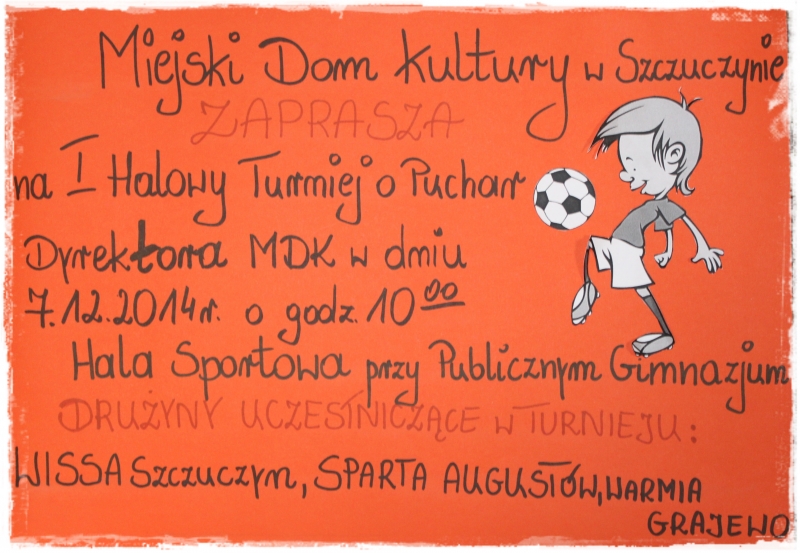 Miejski Dom Kultury w Szczuczynie
ZAPRASZA
na I Halowy Turniej o Puchar
Dyrektora MDK w dniu
7.12.2014r. o godz. 10 00
Hala Sportowa przy Publicznym Gimnazjum
DRUŻYNY UCZESTNICZĄCE W TURNIEJU:
WISSA Szczuczyn, SPARTA AUGUSTÓW, WARMIA
GRAJEWO